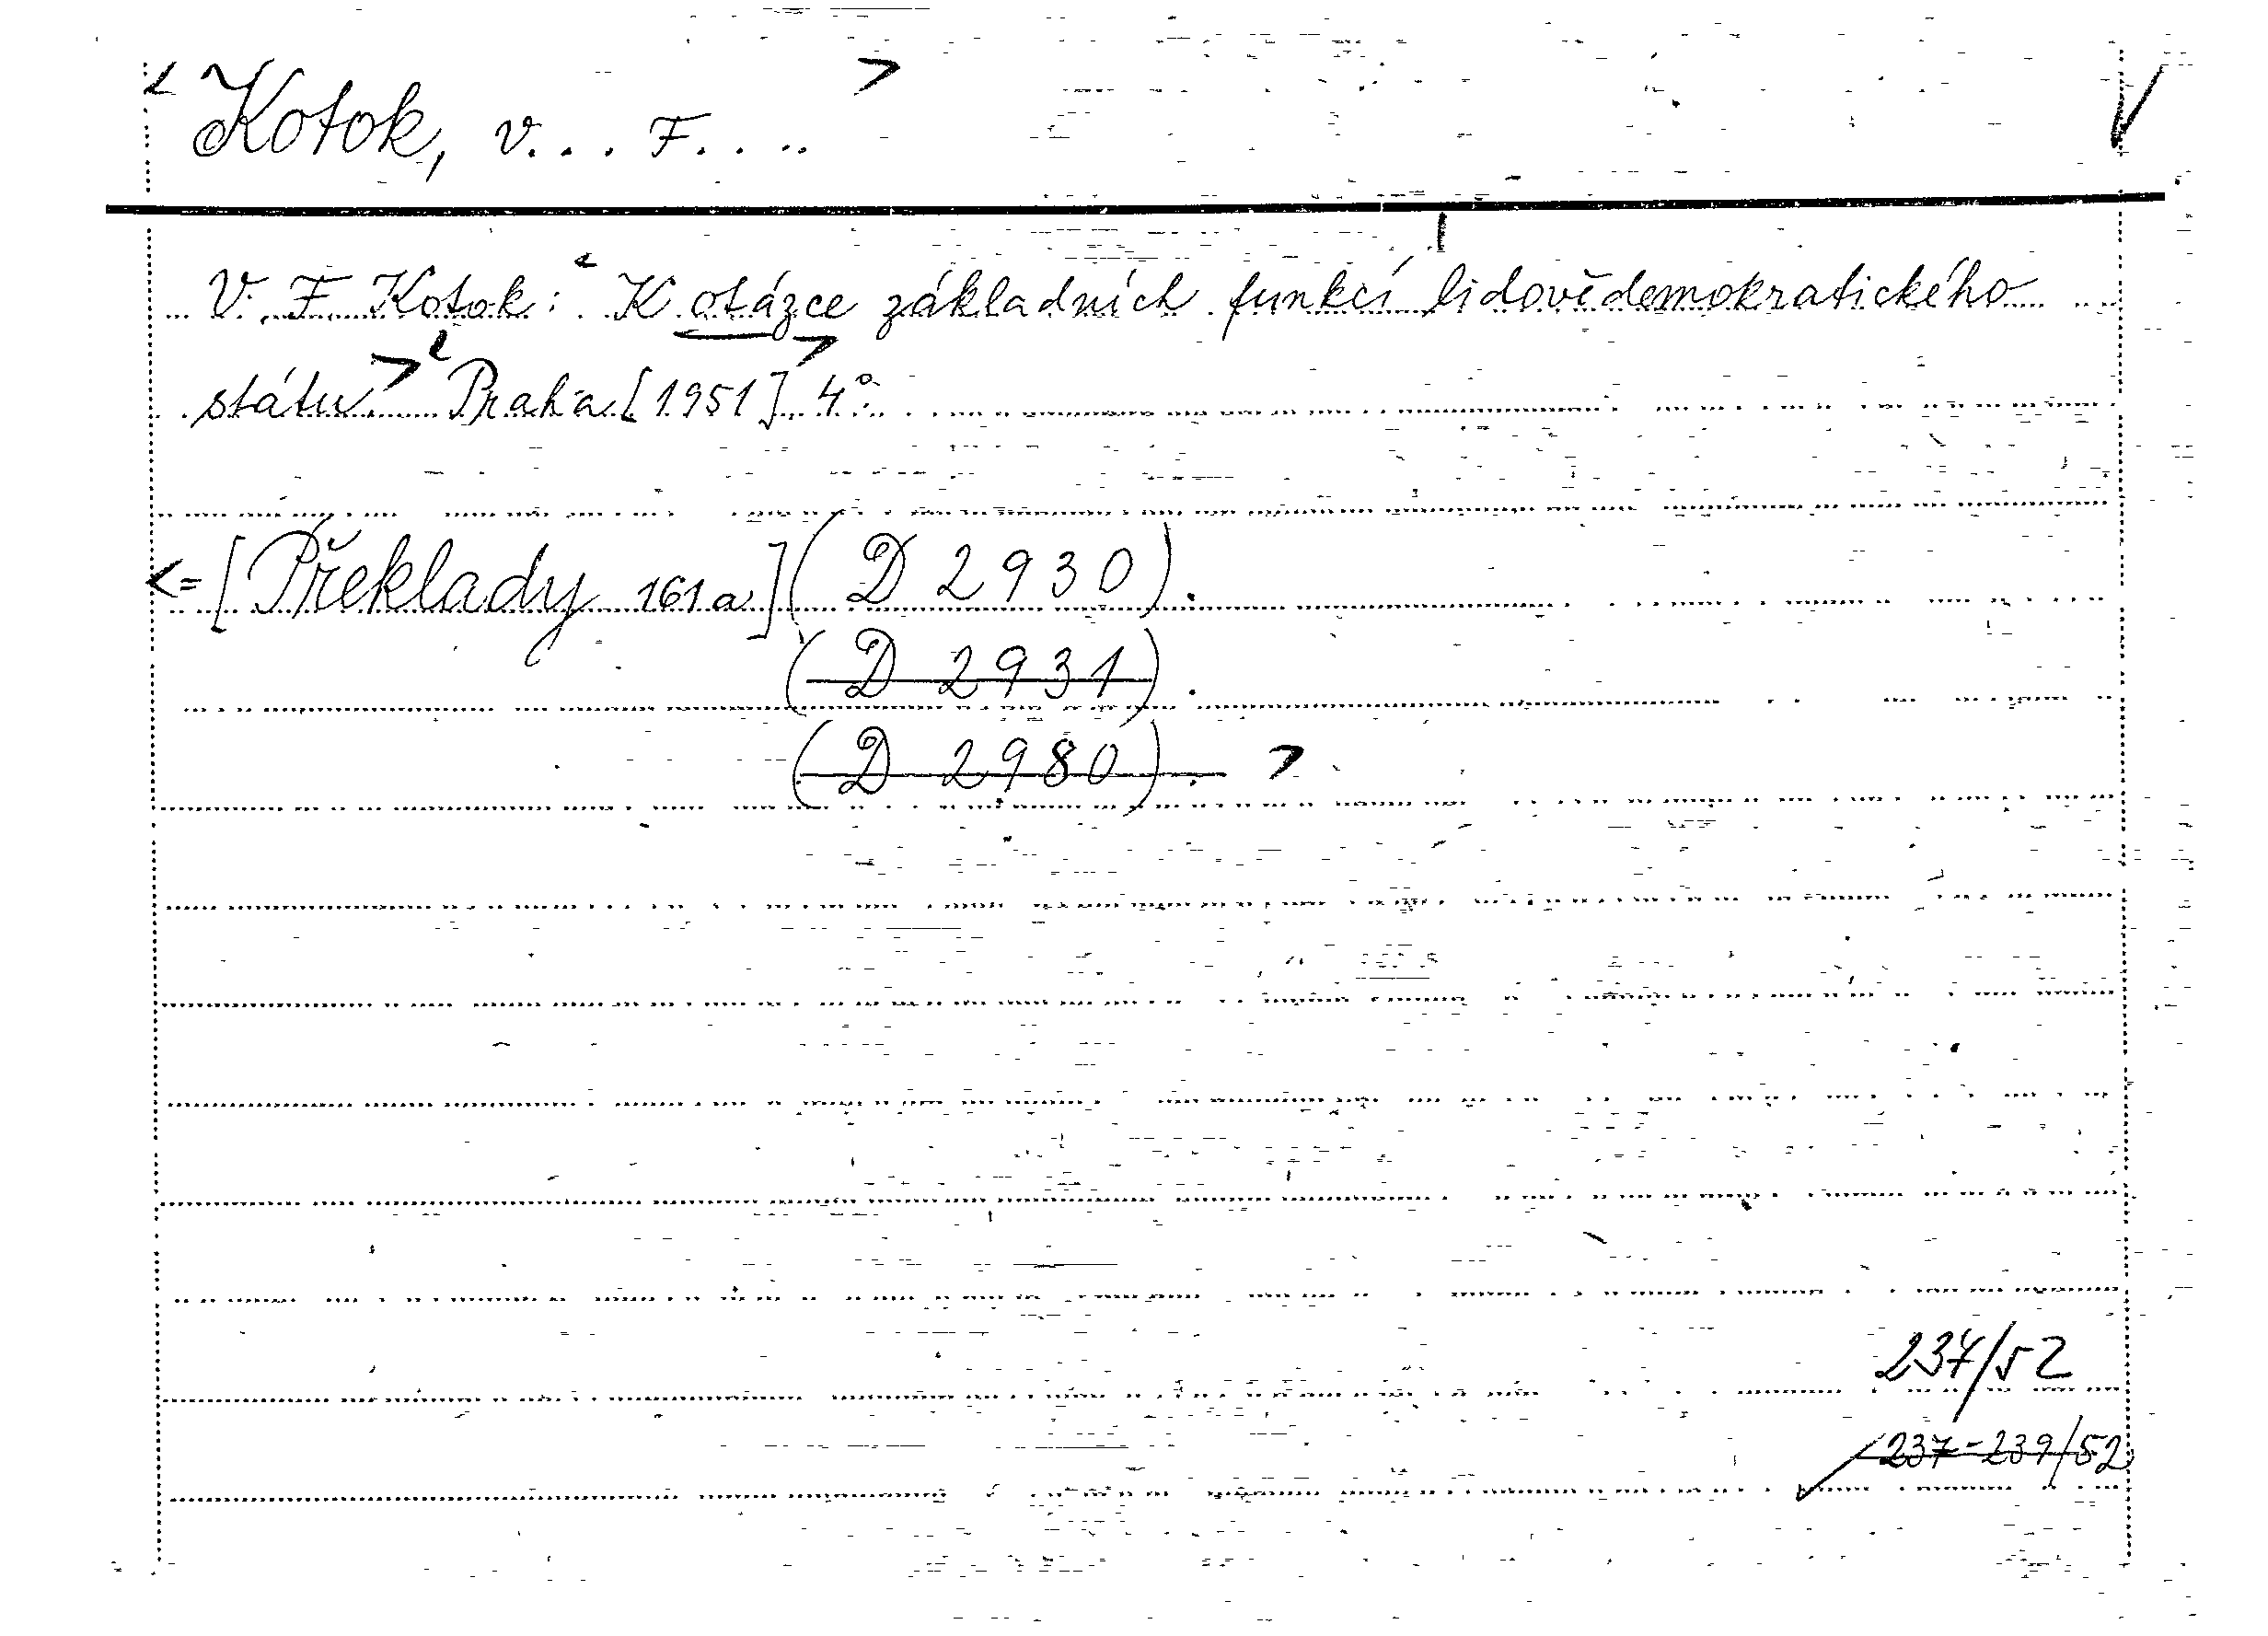 Kotok, V... F....
V. F. Kotok: K otázce základních funkcí lidovědemokratického
státu. Praha [1951] 4°.
= [Překlady 161a] (D 2930).
(D 2931).
(D 2980).
237/52
237-239/52